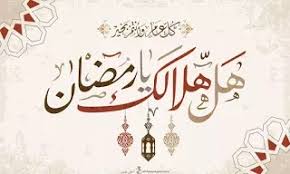 كل عام وأنتم بخير
هل هلالك يا رمضان